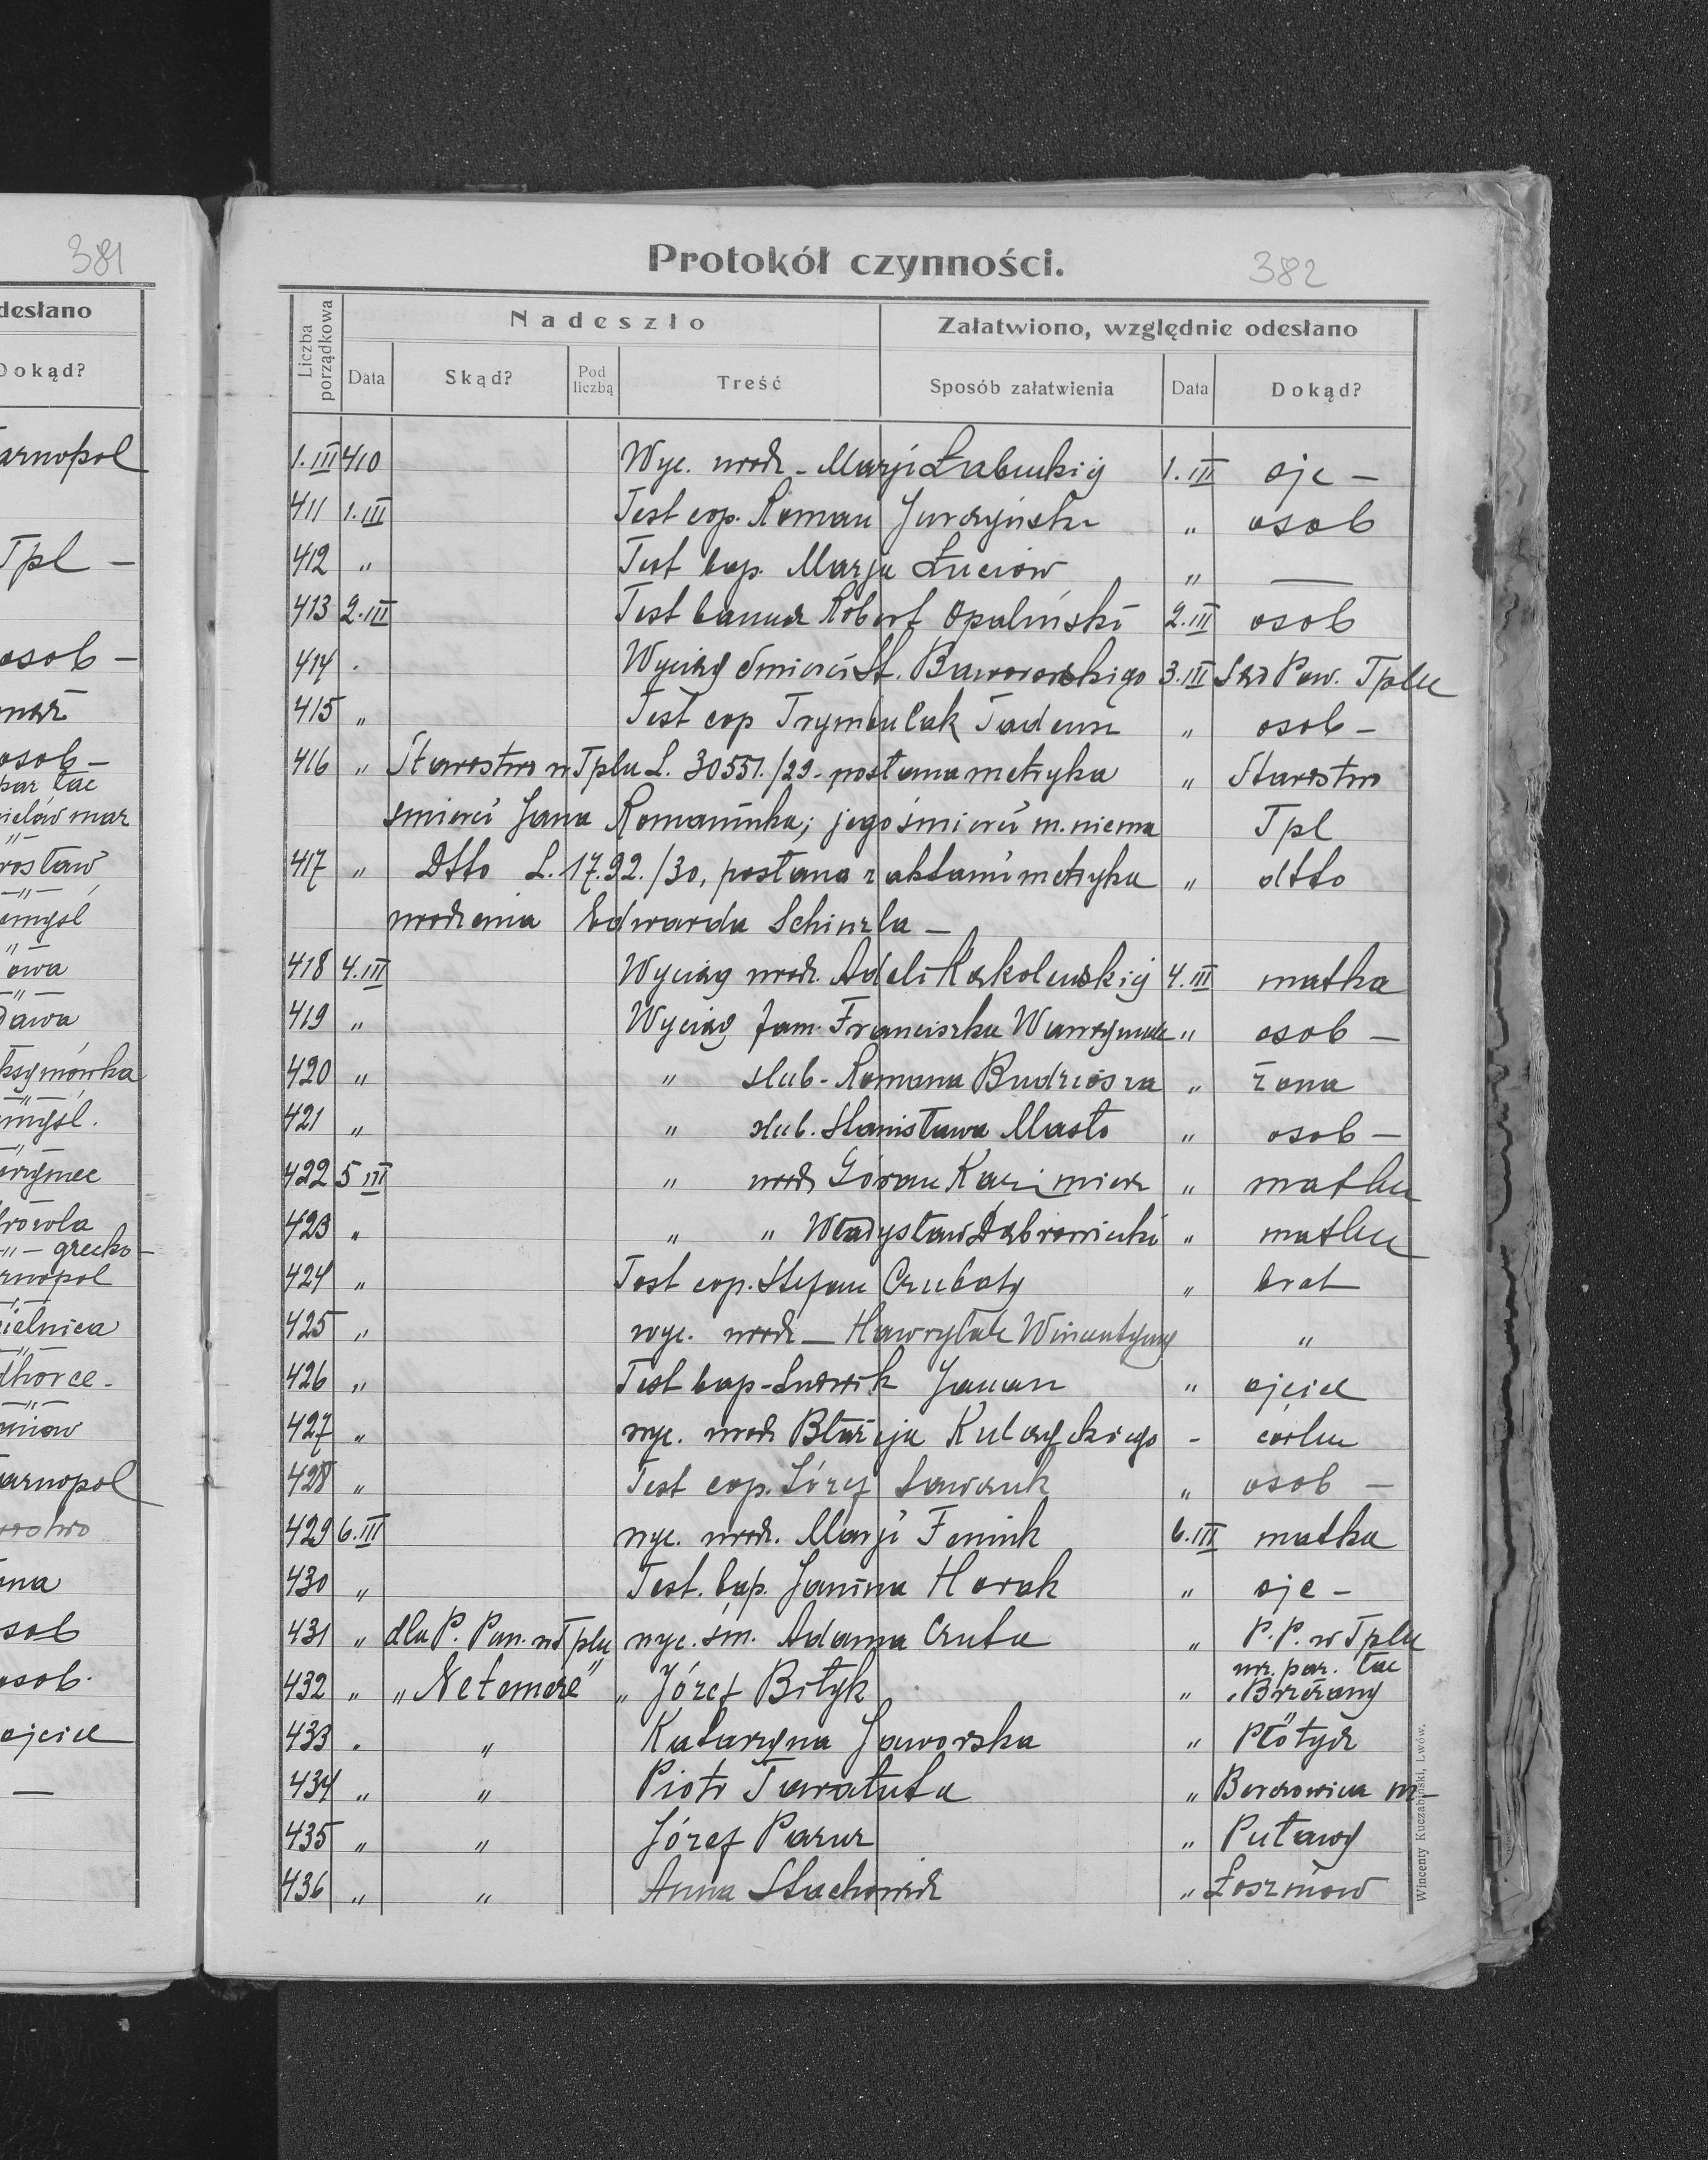 381
desłano
Dokąd?
arnopol
Tpl -
osob -
osob -
par łac
mar
rosław
emyśl
owa
Dawa
ksymówka
mysl.
grecko -
rnopol
ielnica
dhorce -
arnopol
ona
sob
osob.
ojciec
Protokół czynności.
382
Liczba porządkowa
Nadeszło
Załatwiono, względnie odesłano
Data
Skąd?
Pod liczbą
Treść
Sposób załatwienia
Data
Dokąd?
1.III 410 Wyc. urodz - Marji 1.III ojc -
411 1.III Test cop. Roman Jurczyński " osob
412 " Test bap. Marja Łuciow " —
413 2.III Test Robert Opaliński 2.III osob
414 . Wyciąg śmierci St. Baworowskiego 3.III Sąd Pow. Tplu
415 " Test cop Trymbulak Tadeusz " osob -
416 " Starostwo w Tplu L. 30551./29 - posłana metryka " Starostwo
śmierci Jana Romaniuka; jego śmierci m. niema Tpl
417 " Dtto L. 17.92./30, posłana z aktami metryka " dtto
urodzenia Edwarda Schinzla -
418 4.III Wyciąg urodz. Adeli Kąkolewskiej 4.III matka
419 " Wyciąg fam. Franciszka " osob -
420 " " ślub - Romana Budziosza " żona
421 " " ślub. Stanisława Masło " osob -
422 5 III " urodz Góran Kazimierz " matka
423 " " " Władysław Dąbrowiecki " matka
424 " Test cop. Stefan Czubaty " brat
425 " wyc. urodz - Hawryluk Wincentyny "
426 " Test bap - Ludwik " ojciec
427 " wyc. urodz Błażeja Kulczyckiego - córka
428 " Test cop. Józef Sawczuk " osob -
429 6.III wyc. urodz. Marji 6.III matka
430 " Test. bap. Janina Horak " ojc -
431 " dla P. Pan. w Tplu wyc. śm. Adama Czuta " P.P. w Tplu
urz. par. łac
432 " "Ne temere" " Józef Bityk " Brzeżany
433 . " Katarzyna Jaworska " Płotycz
434 " " Piotr Taratuta " Borszowica m -
435 " " Józef Pazur " Puławy
436 " " Anna Stachowicz " Łoszniów
Wincenty Kuczabiński, Lwów.